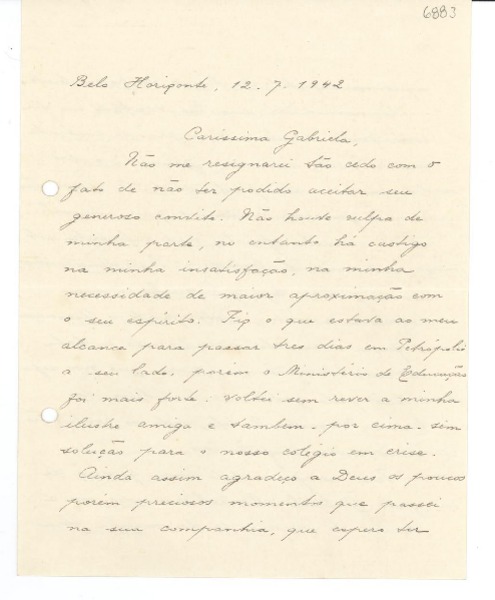 6883
Belo Horizonte, 12.7.1942
Caríssima Gabriela,
Não me resignarei tão cedo com o
fato de não ter podido aceitar seu
generoso convite. Não houve culpa de
minha parte, no entanto há castigo
na minha insatisfação, na minha
necessidade de maior aproximação com
o seu espírito. Fiz o que estava ao meu
alcance para passar tres dias em Petrópolis
a seu lado, porém o Ministério de Educação
foi mais forte. Voltei sem rever a minha
ilustre amiga e tambem - por cima - sem
solução para o nosso colégio em crise.
Ainda assim agradeço a Deus os poucos
porém preciosos momentos que passei
na sua companhia, que espero ter